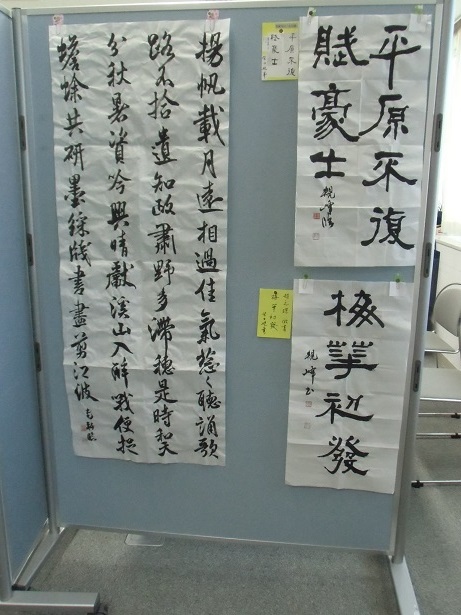 平原不復
賦豪士
平原不復
賦豪士
梅華初發
揚帆載月遠相過佳氣葱々聽誦歌
路不拾遺知政肅野多滯穗是時和天
分秋暑資吟興晴獻溪山入醉哦便捉
蟾蜍共研墨綵牋書盡剪江波